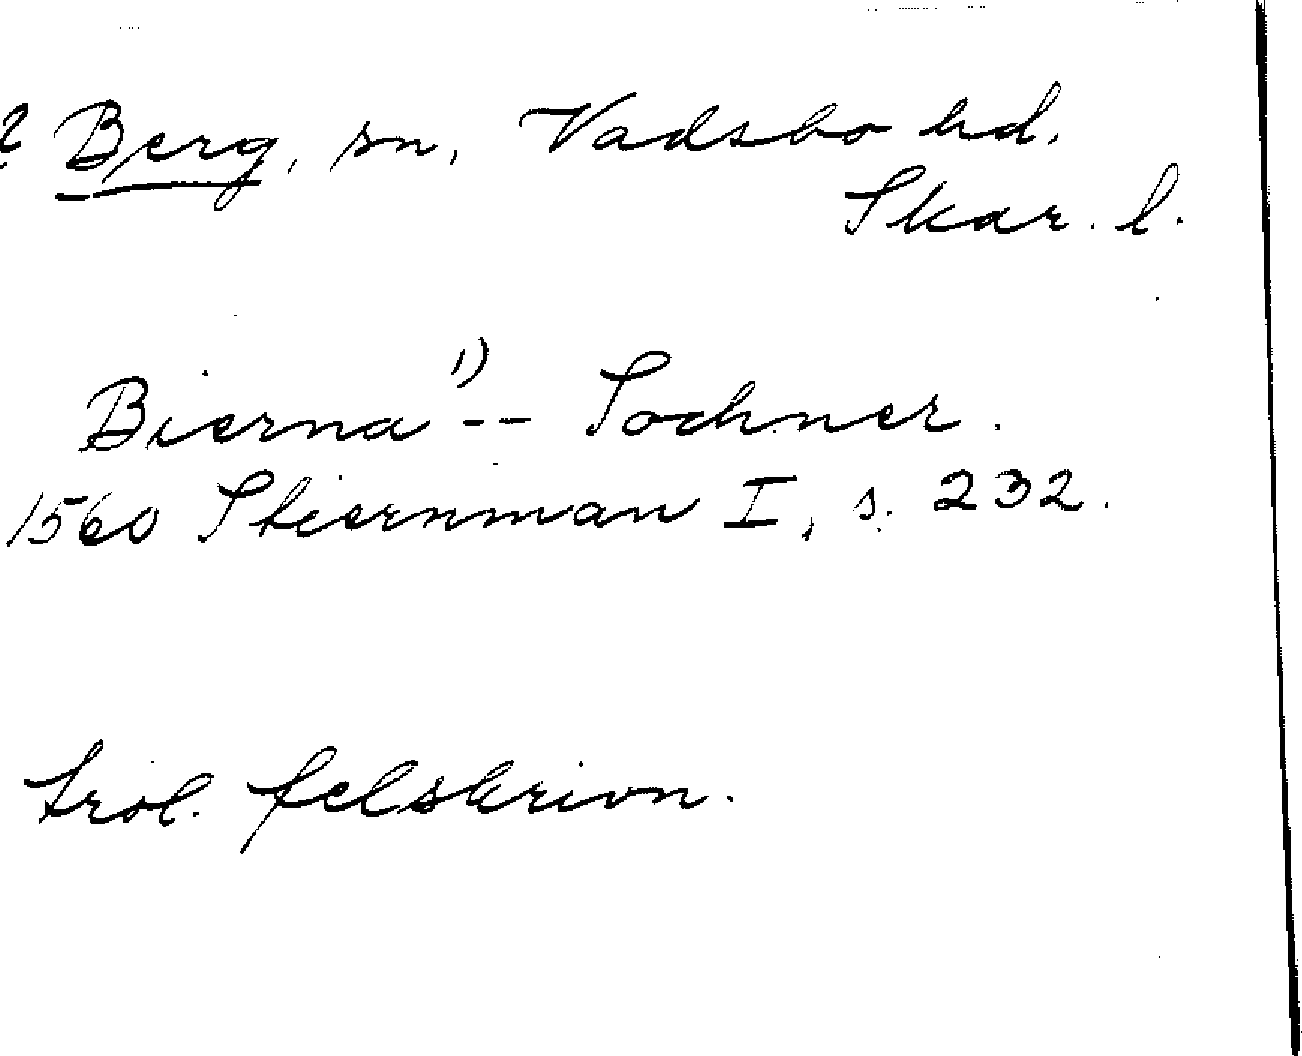 ? Berg, sn, Vadsbo hd.
Skar. l.
Bierna 1) -- Sochner.
1560 Stiernman I, s. 232.
trol. felskrivn.